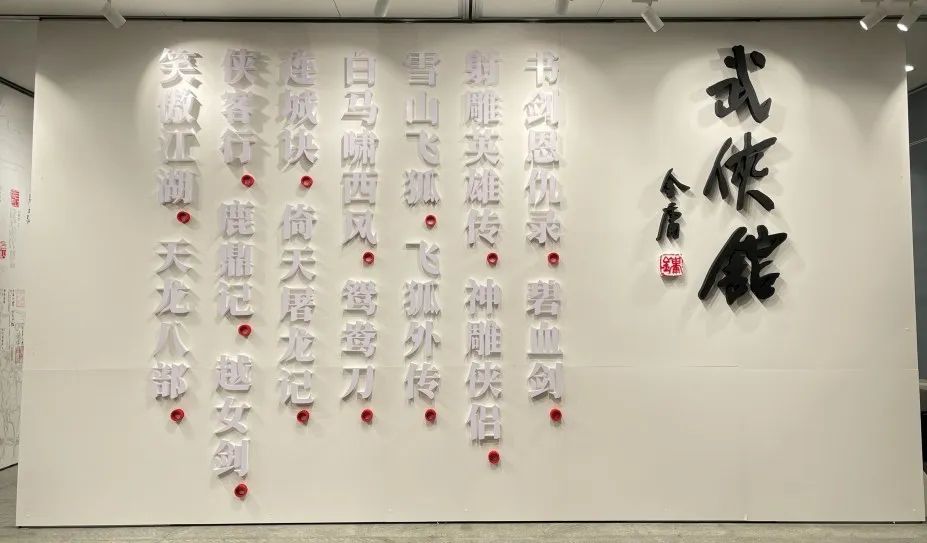 武侠馆
金庸
书剑恩仇录。碧血剑。
射雕英雄传。神雕侠侣。
雪山飞狐。飞狐外传。
白马啸西风。鸳鸯刀。
连城诀。倚天屠龙记。
侠客行。鹿鼎记。越女剑。
笑傲江湖。天龙八部。